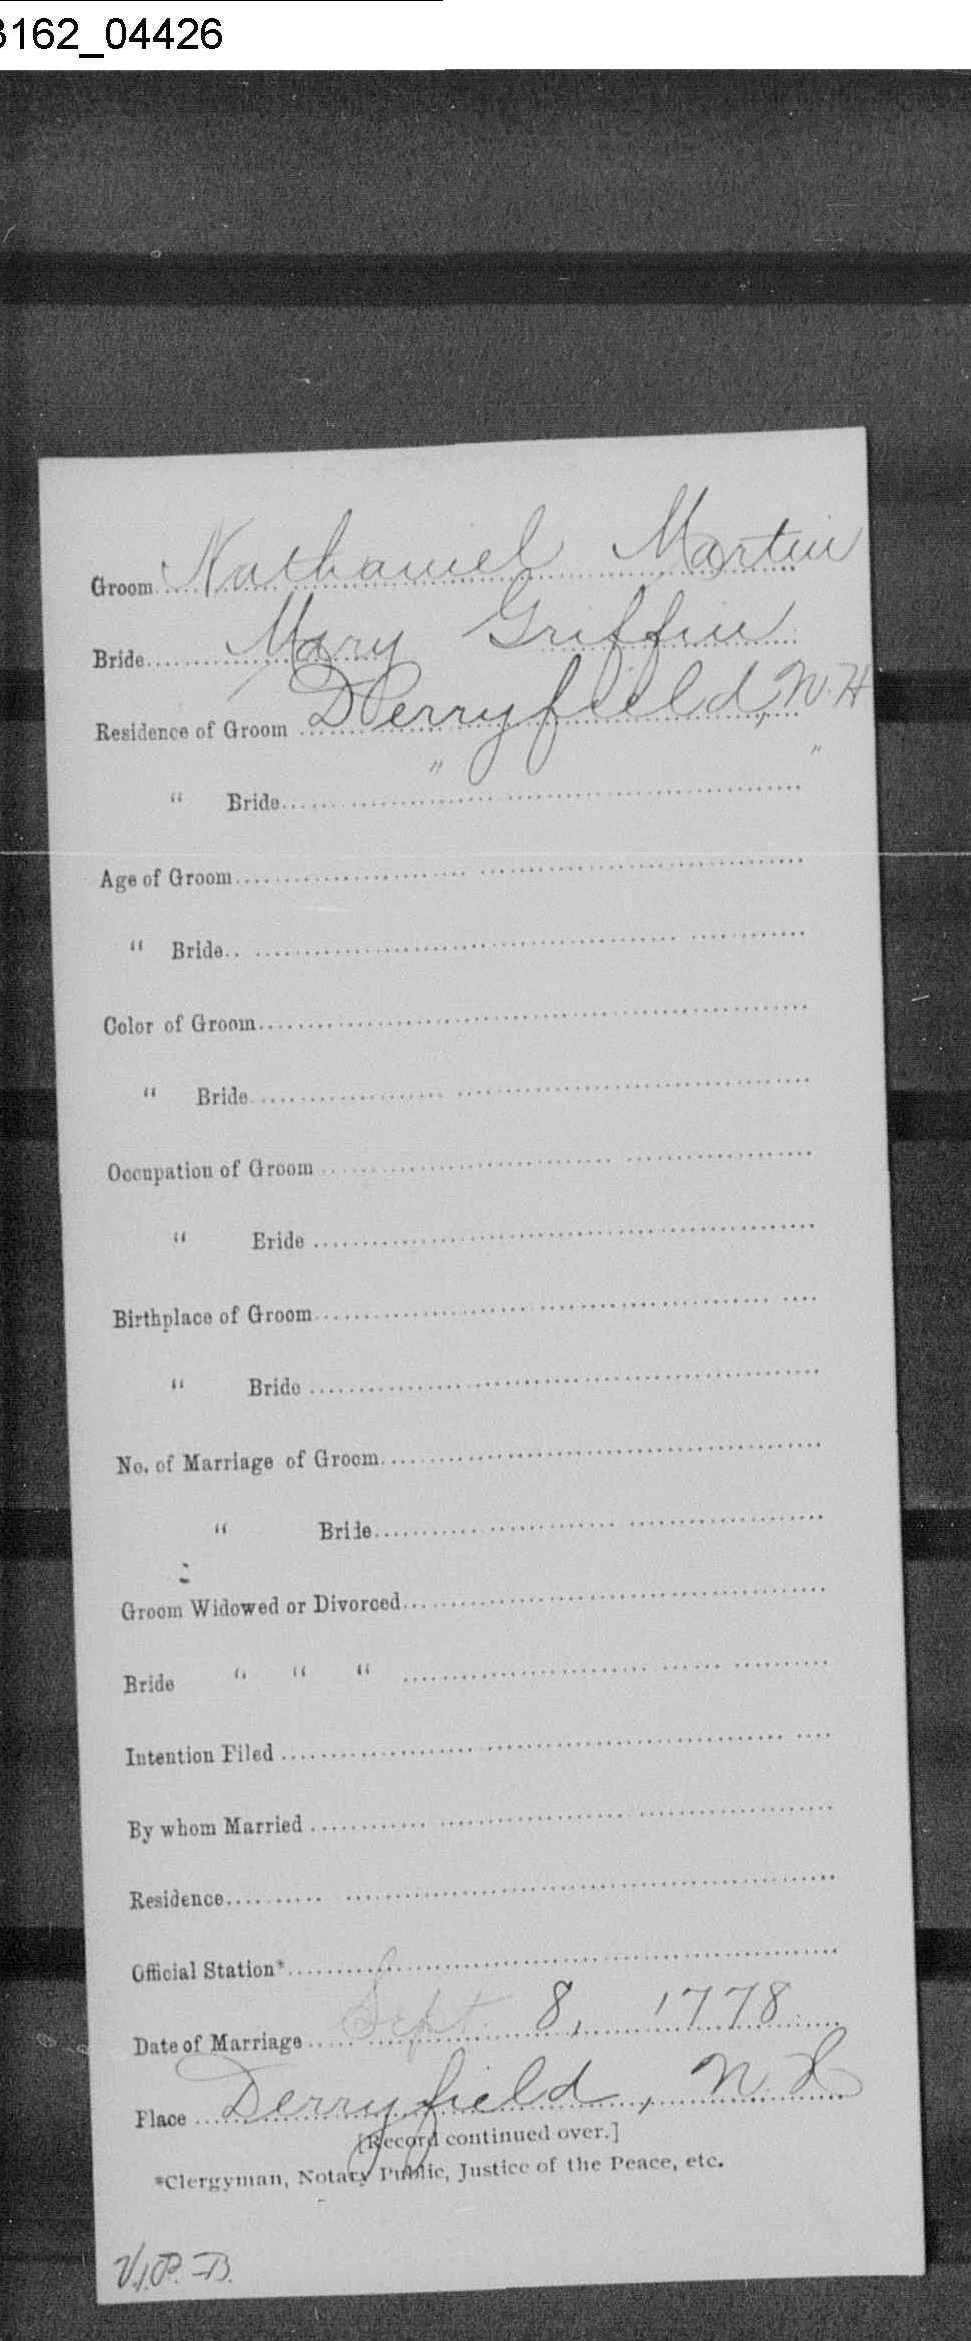 3162_04426
Groom Nathaniel Martin
Bride Mary Griffin
Residence of Groom Derryfield, N.H
" Bride " "
Age of Groom
" Bride
Color of Groom
" Bride
Occupation of Groom
" Bride
Birthplace of Groom
" Bride
No. of Marriage of Groom
" Bride
Groom Widowed or Divorced
Bride " " "
Intention Filed
By whom Married
Residence
Official Station*
Date of Marriage Sept. 8, 1778
Place Derryfield, N.H
[Record continued over.]
*Clergyman, Notary Public, Justice of the Peace, etc.